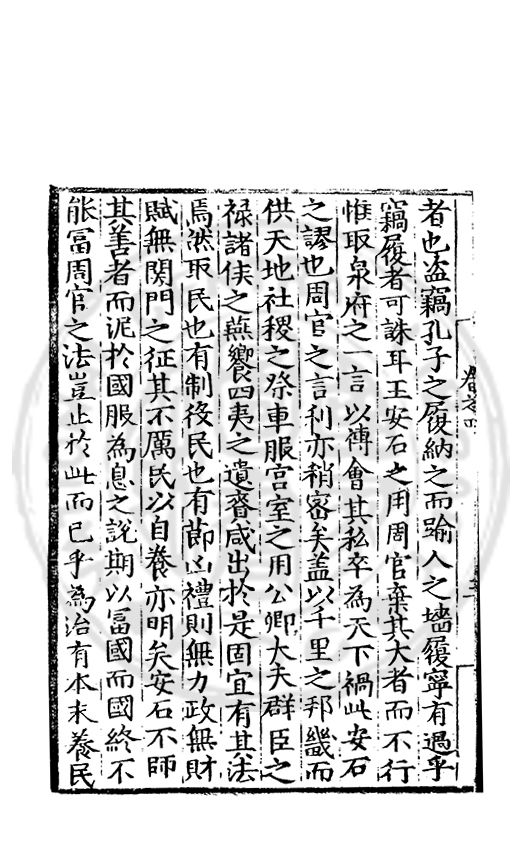 者也盗竊孔子之履納之而踰人之墻履寧有過乎
竊履者可誅耳王安石之用周官棄其大者而不行
惟取泉府之一言以傅會其私卒為天下禍此安石
之謬也周官之言利亦稍密矣盖以千里之邦畿而
供天地社稷之祭車服宫室之用公卿大夫群臣之
禄諸侯之燕饗四夷之遺賚咸出於是固宜有其法
焉然取民也有制役民也有節凶禮則無力政無財
賦無関門之征其不厲民以自養亦明矣安石不師
其善者而泥於國服為息之說期以冨國而國終不
能冨周官之法豈止於此而已乎為治有本末養民